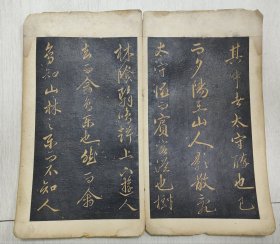 其中者太守醉也已
而夕陽在山人影散亂
太守歸而賓客從也樹
林陰翳鳴聲上下遊人
去而禽鳥樂也然而禽
鳥知山林之樂而不知人